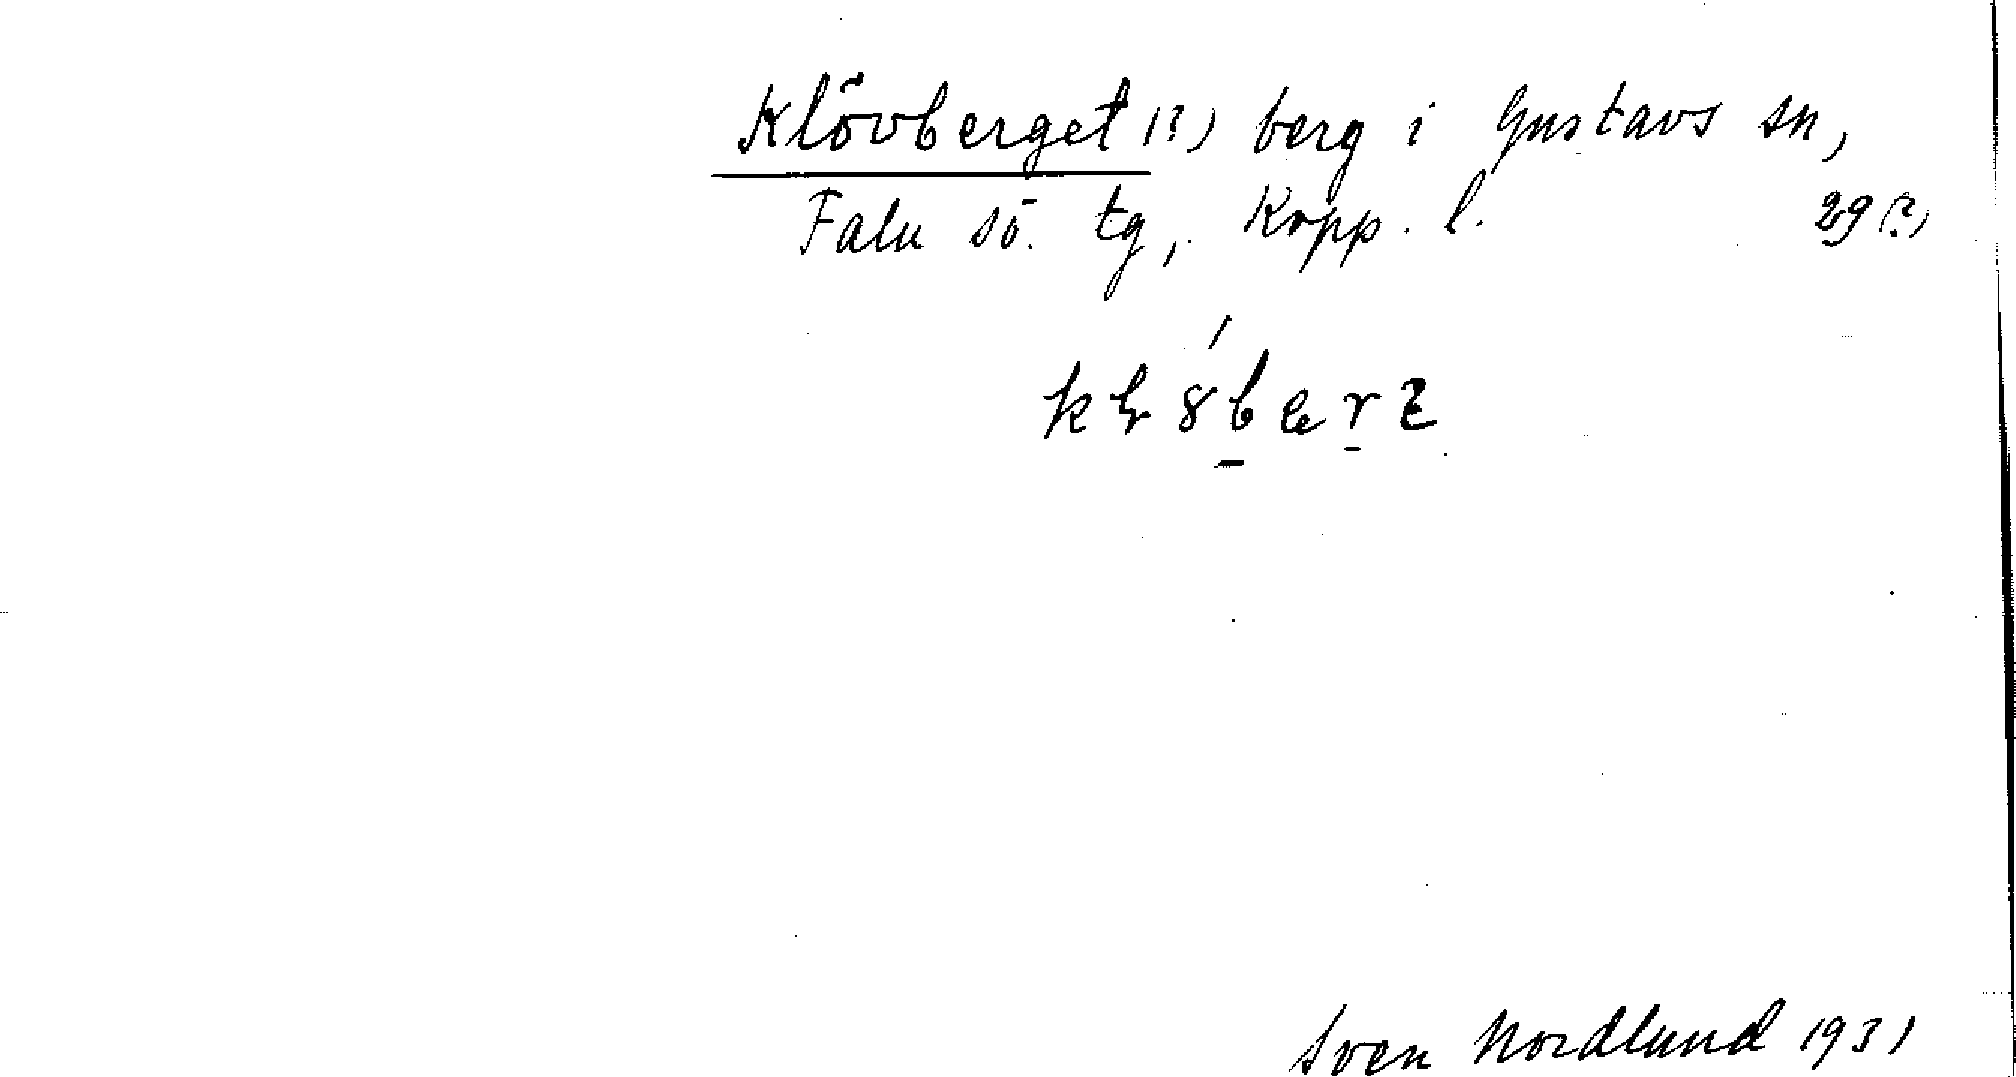 Klövberget (?) berg i Gustavs sn,
Falu sö. tg, Kopp. l. 29 (?)
Sven Nordlund 1931